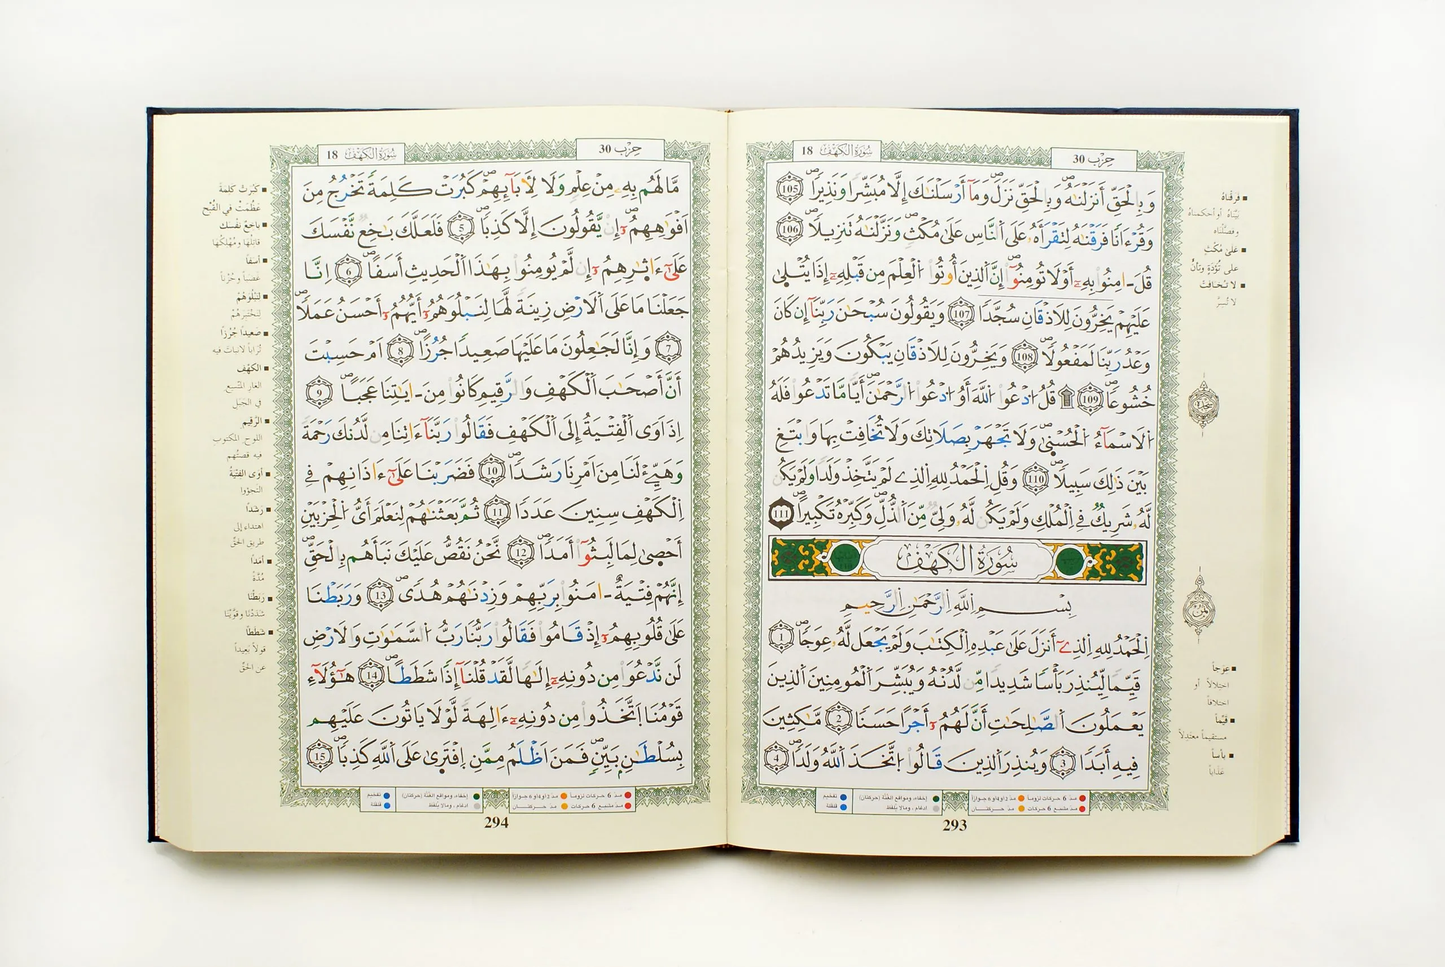 حِزْب 30 سُورَةُ الكَهْفِ 18
وَبِالْحَقِّ أَنزَلْنَٰهُ وَبِالْحَقِّ نَزَلَ وَمَآ أَرْسَلْنَٰكَ إِلَّا مُبَشِّرًا وَنَذِيرًا 105
وَقُرْءَانًا فَرَقْنَٰهُ لِتَقْرَأَهُۥ عَلَى اَلنَّاسِ عَلَىٰ مُكْثٍ وَنَزَّلْنَٰهُ تَنزِيلًا 106
قُلَ اٰمِنُوا۟ بِهِۦٓ أَوْ لَا تُومِنُوٓا۟ إِنَّ اَلذِينَ أُوتُوا۟ اُلْعِلْمَ مِن قَبْلِهِۦٓ إِذَا يُتْلَىٰ
عَلَيْهِمْ يَخِرُّونَ لِلَاذْقَانِ سُجَّدًا 107 وَيَقُولُونَ سُبْحَٰنَ رَبِّنَآ إِن كَانَ
وَعْدُ رَبِّنَا لَمَفْعُولًا 108 وَيَخِرُّونَ لِلَاذْقَانِ يَبْكُونَ وَيَزِيدُهُمْ
خُشُوعًا 109 قُلُ اُدْعُوا۟ اُللَّهَ أَوُ اُدْعُوا۟ اُلرَّحْمَٰنَ أَيًّا مَّا تَدْعُوا۟ فَلَهُ
اُلَاسْمَآءُ اُلْحُسْنَىٰ وَلَا تَجْهَرْ بِصَلَاتِكَ وَلَا تُخَافِتْ بِهَا وَابْتَغِ
بَيْنَ ذَٰلِكَ سَبِيلًا 110 وَقُلِ اِلْحَمْدُ لِلهِ اِلذِے لَمْ يَتَّخِذْ وَلَدًا وَلَمْ يَكُن
لَّهُۥ شَرِيكٌ فِے اِلْمُلْكِ وَلَمْ يَكُن لَّهُۥ وَلِيٌّ مِّنَ اَلذُّلِّ وَكَبِّرْهُ تَكْبِيرًا 111
سُورَةُ الكَهْفِ
بِسْمِ اِللَّهِ اِلرَّحْمَٰنِ اِلرَّحِيمِ
اِلْحَمْدُ لِلهِ اِلذِےٓ أَنزَلَ عَلَىٰ عَبْدِهِ اِلْكِتَٰبَ وَلَمْ يَجْعَل لَّهُۥ عِوَجًا 1
قَيِّمًا لِّيُنذِرَ بَأْسًا شَدِيدًا مِّن لَّدُنْهُ وَيُبَشِّرَ اَلْمُومِنِينَ اَلذِينَ
يَعْمَلُونَ اَلصَّٰلِحَٰتِ أَنَّ لَهُمُۥٓ أَجْرًا حَسَنًا 2 مَّٰكِثِينَ
فِيهِ أَبَدًا 3 وَيُنذِرَ اَلذِينَ قَالُوا۟ اُتَّخَذَ اَللَّهُ وَلَدًا 4
فرقناه
بيّناه أو أحكمناه
وفصّلناه
على مُكْثٍ
على تُؤَدَةٍ وتأنٍّ
لا تخافت
لا تُسِرّ
سجدة
ثمن
عِوَجاً
اختلالاً أو
اختلافاً
قيّماً
مستقيماً معتدلاً
بأساً
عذاباً
مدّ 6 حركات لزوماً مدّ 2 أو 4 أو 6 جوازاً إخفاء، ومواقع الغنّة (حركتان) تفخيم
مدّ مشبع 6 حركات مدّ حركتان ادغام، وما لا يُلفظ قلقلة
293
حِزْب 30 سُورَةُ الكَهْفِ 18
مَّا لَهُم بِهِۦ مِنْ عِلْمٍ وَلَا لِأٓبَآئِهِمْ كَبُرَتْ كَلِمَةً تَخْرُجُ مِنَ
اَفْوَٰهِهِمُۥٓ إِنْ يَّقُولُونَ إِلَّا كَذِبًا 5 فَلَعَلَّكَ بَٰخِعٌ نَّفْسَكَ
عَلَىٰٓ ءَاثٰ۪رِهِمُۥٓ إِن لَّمْ يُومِنُوا۟ بِهَٰذَا اَلْحَدِيثِ أَسَفًا 6 اِنَّا
جَعَلْنَا مَا عَلَى اَلَارْضِ زِينَةً لَّهَا لِنَبْلُوَهُمُۥٓ أَيُّهُمُۥٓ أَحْسَنُ عَمَلًا
7 وَإِنَّا لَجَٰعِلُونَ مَا عَلَيْهَا صَعِيدًا جُرُزًا 8 اَمْ حَسِبْتَ
أَنَّ أَصْحَٰبَ اَلْكَهْفِ وَالرَّقِيمِ كَانُوا۟ مِنَ اٰيَٰتِنَا عَجَبًا 9
اِذَ اَوَى اَلْفِتْيَةُ إِلَى اَلْكَهْفِ فَقَالُوا۟ رَبَّنَآ ءَاتِنَا مِن لَّدُنكَ رَحْمَةً
وَهَيِّئْ لَنَا مِنَ اَمْرِنَا رَشَدًا 10 فَضَرَبْنَا عَلَىٰٓ ءَاذَانِهِمْ فِے
اِلْكَهْفِ سِنِينَ عَدَدًا 11 ثُمَّ بَعَثْنَٰهُمْ لِنَعْلَمَ أَيُّ اُلْحِزْبَيْنِ
أَحْصَىٰ لِمَا لَبِثُوٓا۟ أَمَدًا 12 نَّحْنُ نَقُصُّ عَلَيْكَ نَبَأَهُم بِالْحَقِّ
إِنَّهُمْ فِتْيَةٌ اٰمَنُوا۟ بِرَبِّهِمْ وَزِدْنَٰهُمْ هُدًى 13 وَرَبَطْنَا
عَلَىٰ قُلُوبِهِمُۥٓ إِذْ قَامُوا۟ فَقَالُوا۟ رَبُّنَا رَبُّ اُلسَّمَٰوَٰتِ وَالَارْضِ
لَن نَّدْعُوَا۟ مِن دُونِهِۦٓ إِلَٰهًا لَّقَدْ قُلْنَآ إِذًا شَطَطًا 14 هَٰٓؤُلَآءِ
قَوْمُنَا اَتَّخَذُوا۟ مِن دُونِهِۦٓ ءَالِهَةً لَّوْلَا يَاتُونَ عَلَيْهِم
بِسُلْطَٰنٍ بَيِّنٍ فَمَنَ اَظْلَمُ مِمَّنِ اِفْتَرَىٰ عَلَى اَللَّهِ كَذِبًا 15
كَبُرَتْ كَلِمَةً
عَظُمَتْ في القُبْح
باخِعٌ نفسك
قاتلها ومُهْلِكُها
أسفاً
غضباً وحُزْناً
لنبلُوَهُمْ
لنختبرهُمْ
صعيداً جُرُزاً
تُراباً لا نبات فيه
الكهف
الغار المتّسع
في الجَبَل
الرّقيم
اللّوح المكتوب
فيه قصّتهم
أوى الفتية
التجؤوا
رَشَداً
اهتداء إلى
طريق الحقّ
أمداً
مُدّةً
رَبَطْنا
شَدَدْنا وقوَّيْنا
شططاً
قولاً بعيداً
عن الحقّ
مدّ 6 حركات لزوماً مدّ 2 أو 4 أو 6 جوازاً إخفاء، ومواقع الغنّة (حركتان) تفخيم
مدّ مشبع 6 حركات مدّ حركتان ادغام، وما لا يُلفظ قلقلة
294